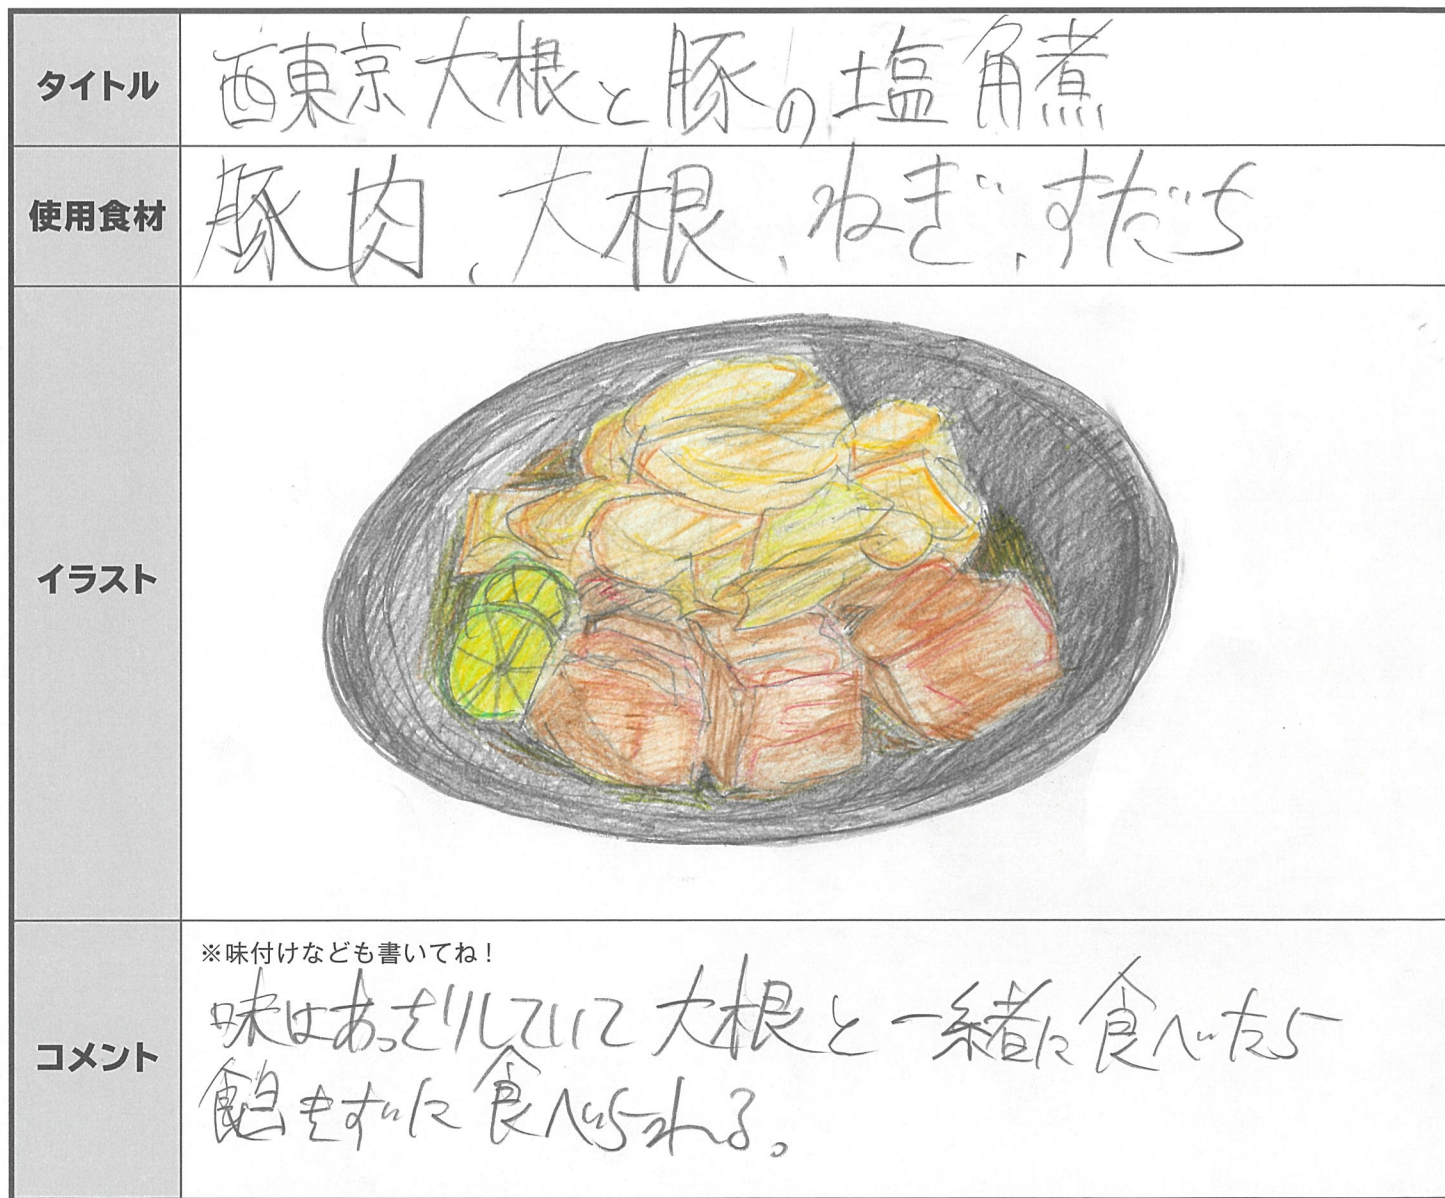 タイトル
西東京大根と豚の塩角煮
使用食材
豚肉、大根、ねぎ、すだち
イラスト
コメント
※味付けなども書いてね!
味はあっさりしていて大根と一緒に食べたら
飽きずに食べられる。